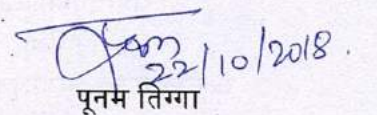 22/10/2018.
पूनम तिग्गा